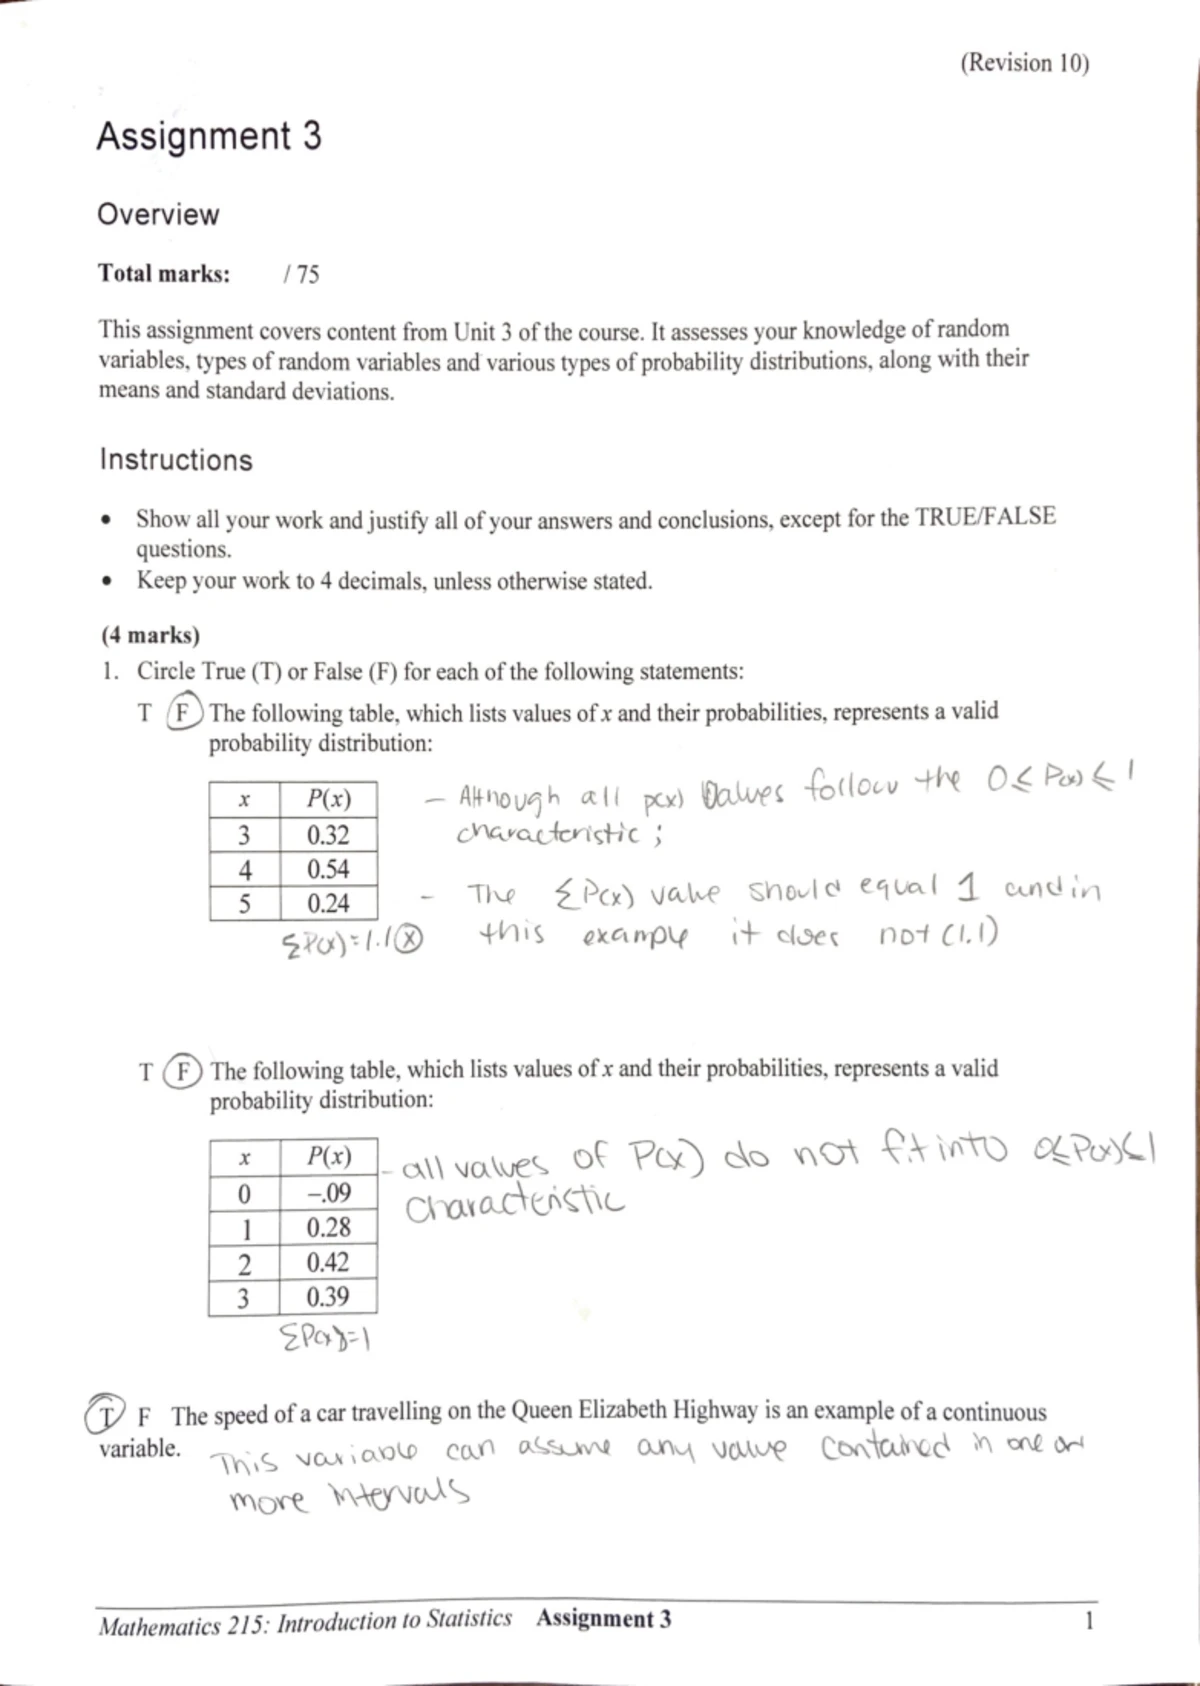 (Revision 10)
Assignment 3
Overview
Total marks: / 75
This assignment covers content from Unit 3 of the course. It assesses your knowledge of random
variables, types of random variables and various types of probability distributions, along with their
means and standard deviations.
Instructions
• Show all your work and justify all of your answers and conclusions, except for the TRUE/FALSE
questions.
• Keep your work to 4 decimals, unless otherwise stated.
(4 marks)
1. Circle True (T) or False (F) for each of the following statements:
T F The following table, which lists values of x and their probabilities, represents a valid
probability distribution:
x P(x)
3 0.32
4 0.54
5 0.24
ΣP(x)=1.1 ⓧ
- Although all p(x) values follow the 0≤ P(x) ≤ 1
characteristic ;
- The ΣP(x) value should equal 1 and in
this example it does not (1.1)
T F The following table, which lists values of x and their probabilities, represents a valid
probability distribution:
x P(x)
0 –.09
1 0.28
2 0.42
3 0.39
ΣP(x)=1
- all values of P(x) do not fit into 0≤P(x)≤1
characteristic
T F The speed of a car travelling on the Queen Elizabeth Highway is an example of a continuous
variable.
This variable can assume any value contained in one or
more intervals
Mathematics 215: Introduction to Statistics Assignment 3 1